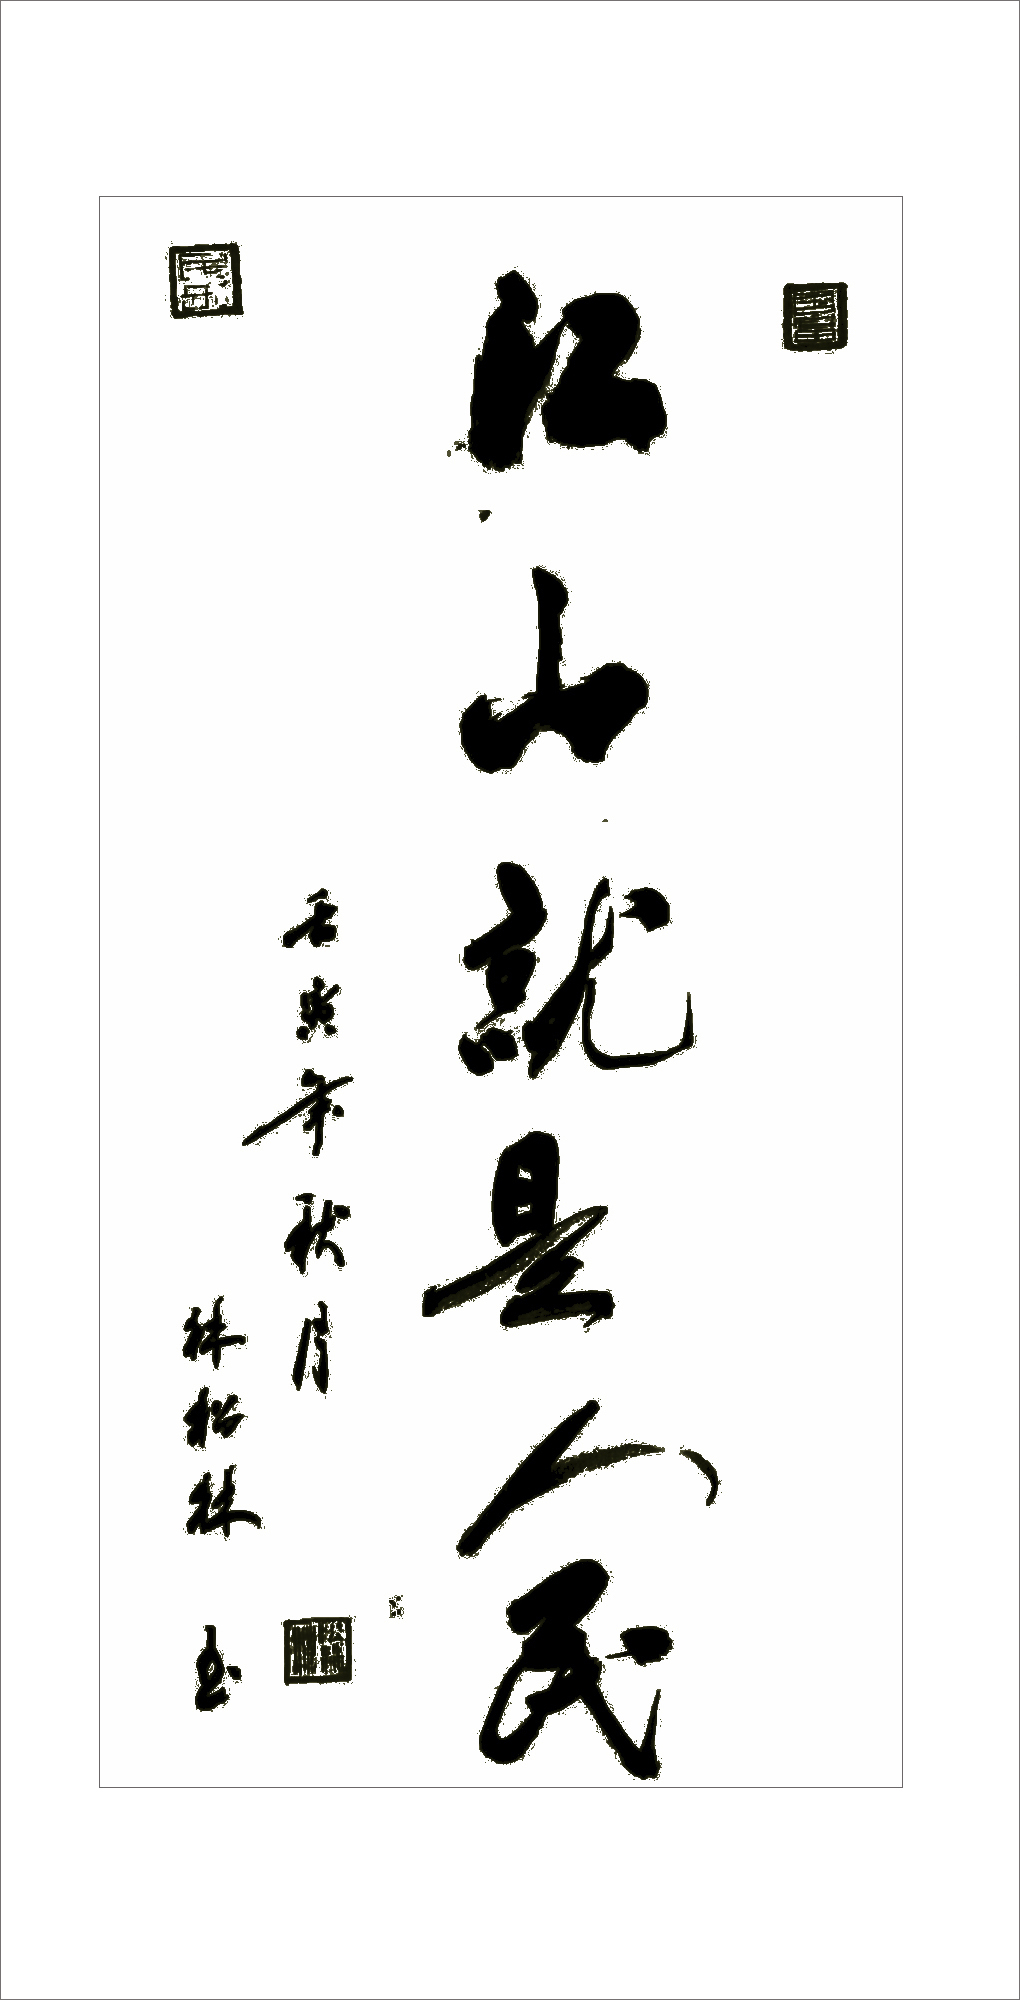 江山就是人民
壬寅年秋月
林松林
书